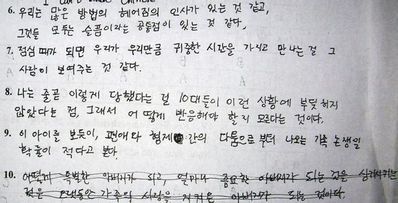 6. 우리는 많은 방법의 헤어짐의 인사가 있는 것 같고,
그것들 모두는 슬픔이라는 공통점이 있는 것 같다.
7. 점심 때가 되면 우리가 우리만큼 귀중한 시간을 가지고 만나는 걸 그
사람이 보여주는 것 같다.
8. 나는 줄곧 이렇게 당했다는 걸 10대들이 이런 상황에 부딪히지
않았다는 점, 그래서 어떻게 반응해야 할지 모른다는 것이다.
9. 이 아이를 보듯이, 편애와 형제 간의 다툼으로부터 나오는 기준 논쟁일
확률이 적다고 본다.
10. 어떻게 특별한 아버지가 되고, 얼마나 중요한 아버지가 되는 것을
것은 가족의 아버지가 되는 것이다.